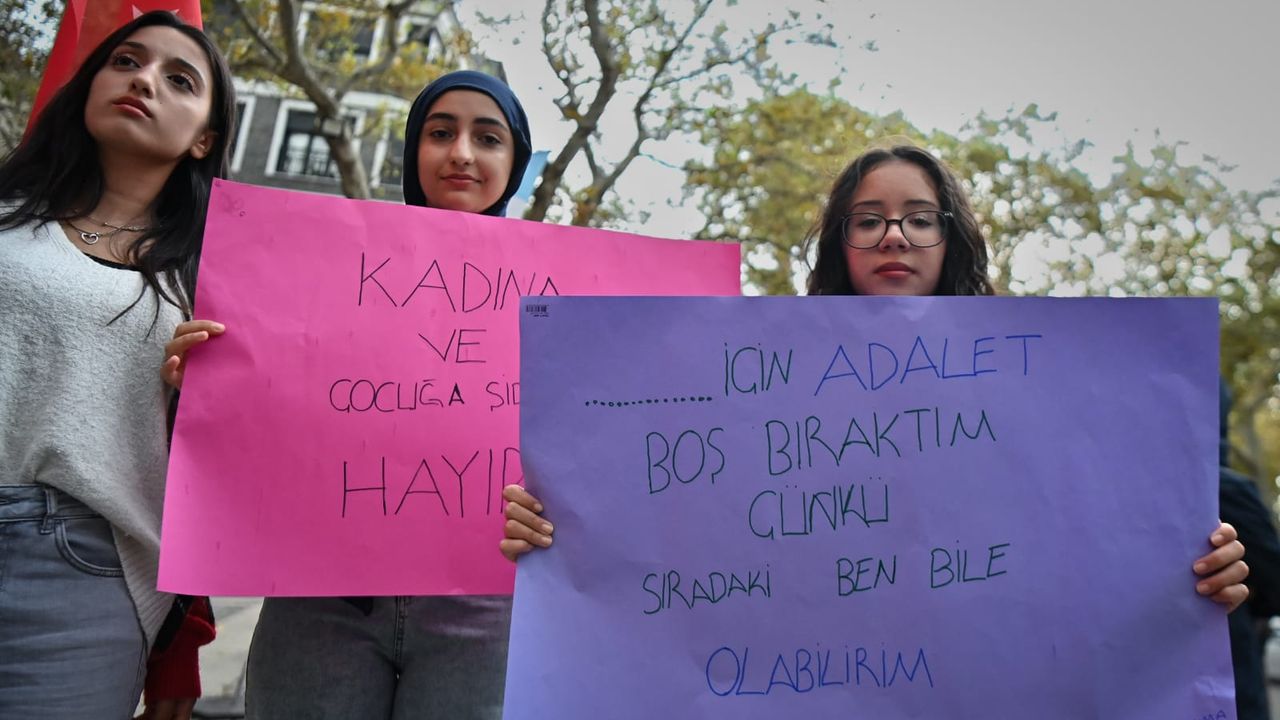 KADINA
VE
ÇOCUĞA ŞİD
HAYIR
.............. İÇİN ADALET
BOŞ BIRAKTIM
ÇÜNKÜ
SIRADAKİ BEN BİLE
OLABİLİRİM